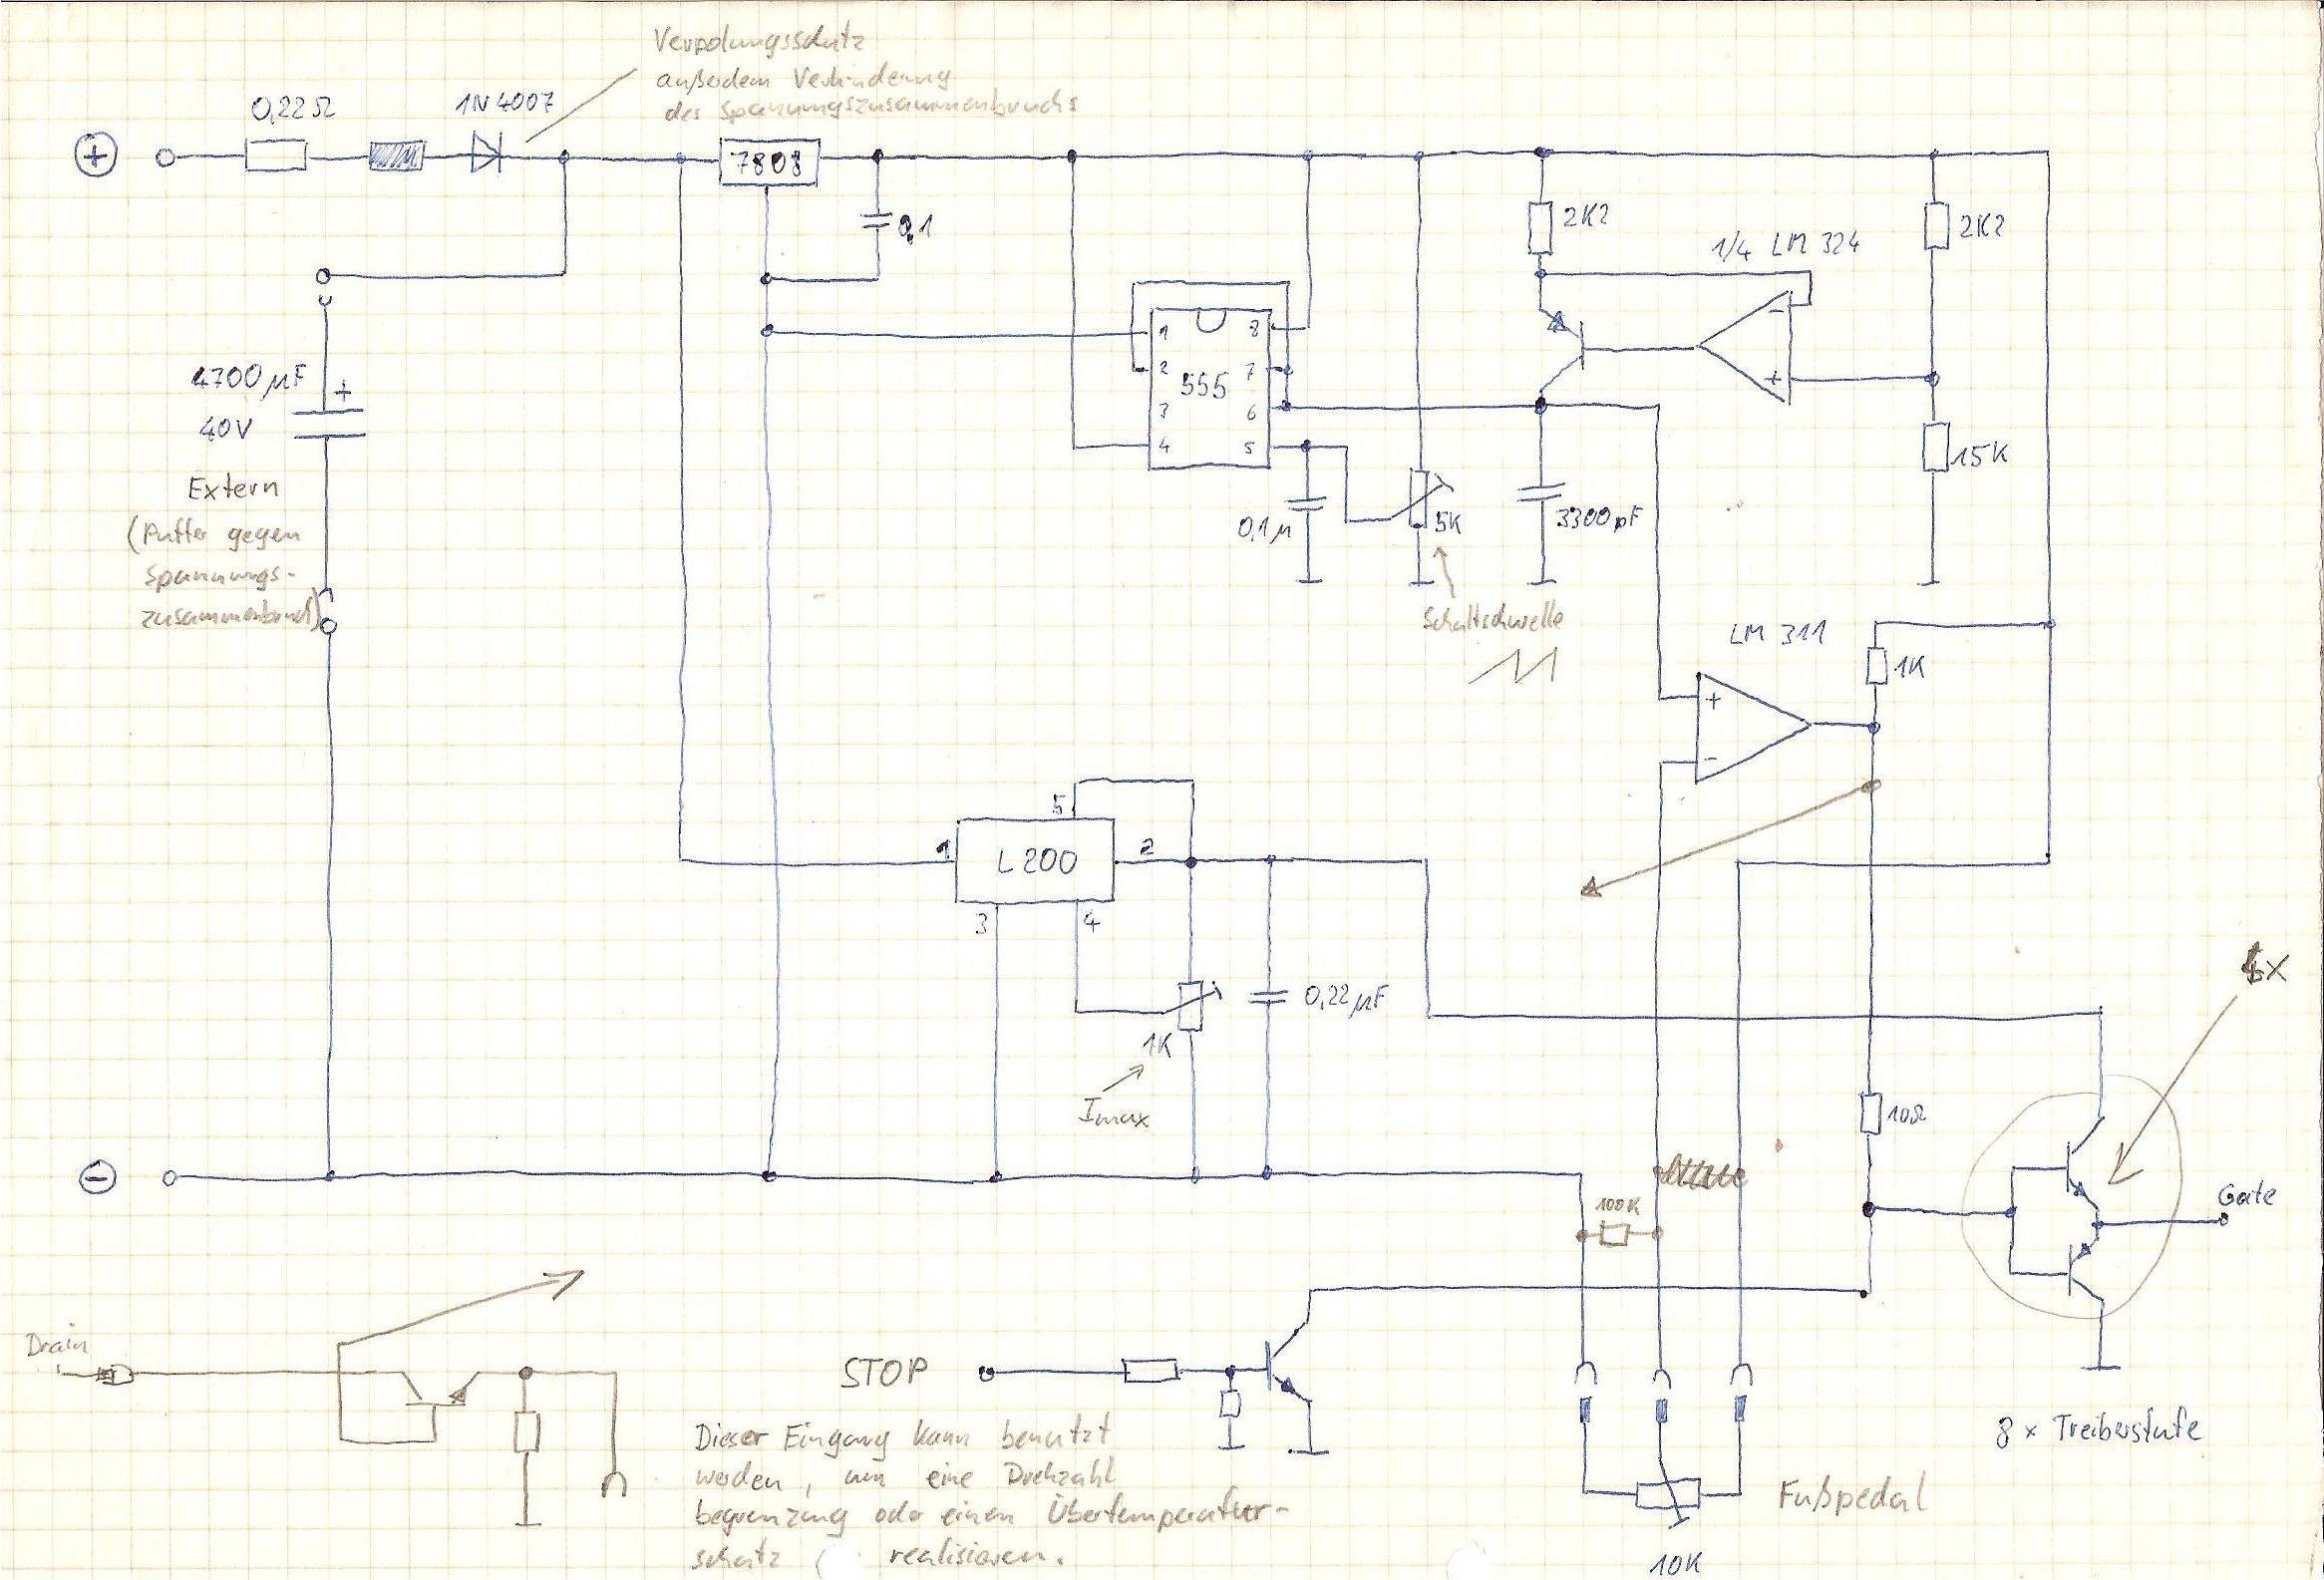 Verpolungsschutz
außerdem Verhinderung
des Spannungszusammenbruchs
0,22Ω
1N 4007
+
7808
0,1
2K2
1/4 LM 324
2K2
4700 µF
+
40V
Extern
(Puffer gegen
Spannungs-
zusammenbruch)
1
8
2
7
555
3
6
4
5
-
+
15K
0,1µ
5K
3300pF
Schaltschwelle
LM 311
1K
+
-
5
1
L200
2
3
4
0,22µF
1K
Imax
10Ω
-
100K
Gate
Drain
STOP
Dieser Eingang kann benutzt
werden, um eine Drehzahl
begrenzung oder einen Übertemperatur-
schutz realisieren.
8 x Treiberstufe
Fußpedal
10K